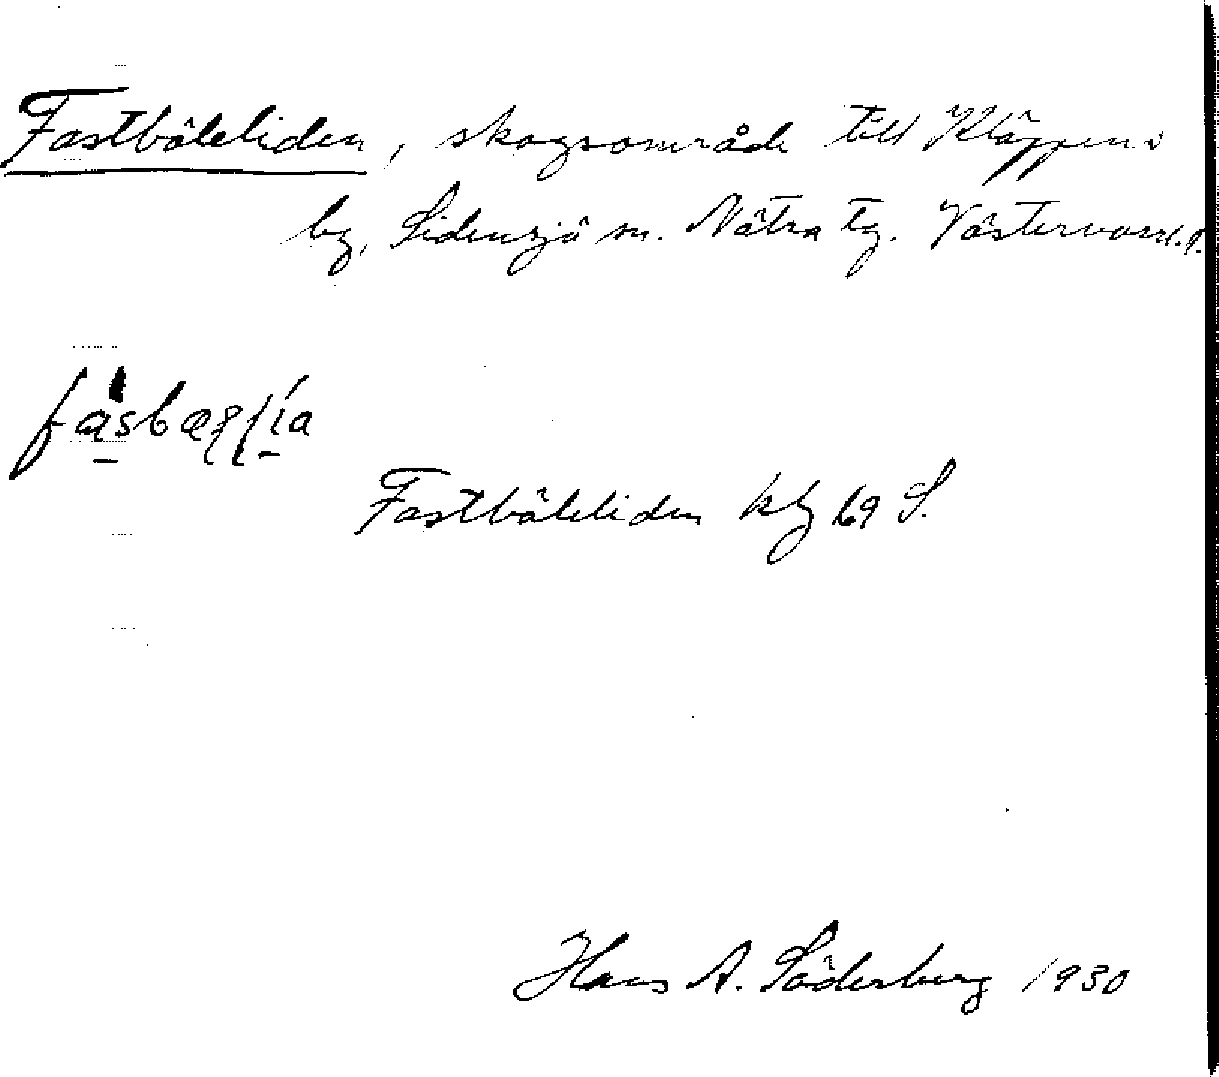 Fastböleliden, skogsområde till Kläppens
by, Sidensjö sn. Nätra tg. Västernorrl. l.
Fastböleliden kbl 69 S.
Hans A. Söderberg 1930